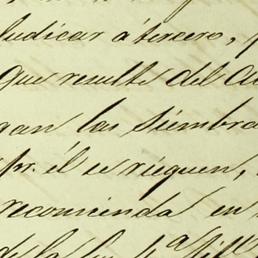 judicar á tercero,
que resulte del
gan las siembra
pr. él se rieguen,
recomienda en